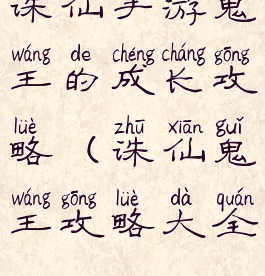 诛仙手游鬼
wáng de chéng cháng gōng
王的成长攻
lüè zhū xiān guǐ
略（诛仙鬼
wáng gōng lüè dà quán
王攻略大全